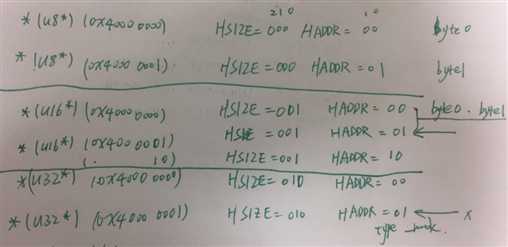 210 10
*(U8*) (0X4000 0000) HSIZE=000 HADDR=00 byte0
*(U8*) (0X4000 0001) HSIZE=000 HADDR=01 byte1
*(U16*) (0X4000 0000) HSIZE=001 HADDR=00 byte0. byte1
*(U16*) (0X4000 0001) HSIZE=001 HADDR=01 ←
( 10) HSIZE=001 HADDR=10
*(U32*) (0X4000 0000) HSIZE=010 HADDR=00
*(U32*) (0X4000 0001) HSIZE=010 HADDR=01 ← X
type